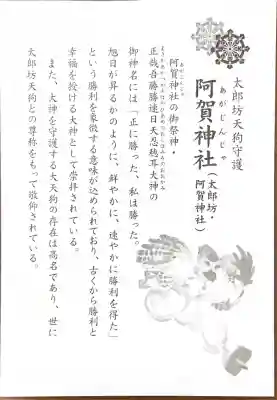 太郎坊天狗守護
あがじんじゃ
阿賀神社（太郎坊・阿賀神社）
あがじんじゃ
阿賀神社の御祭神・
まさかあかつかちはやひあめのおしほみみのおおかみ
正哉吾勝勝速日天忍穂耳大神の
御神名には「正に勝った、私は勝った。
旭日が昇るかのように、鮮やかに、速やかに勝利を得た」
という勝利を象徴する意味が込められており、古くから勝利と
幸福を授ける大神として崇拝されている。
また、大神を守護する大天狗の存在は高名であり、世に
太郎坊天狗との尊称をもって敬仰されている。